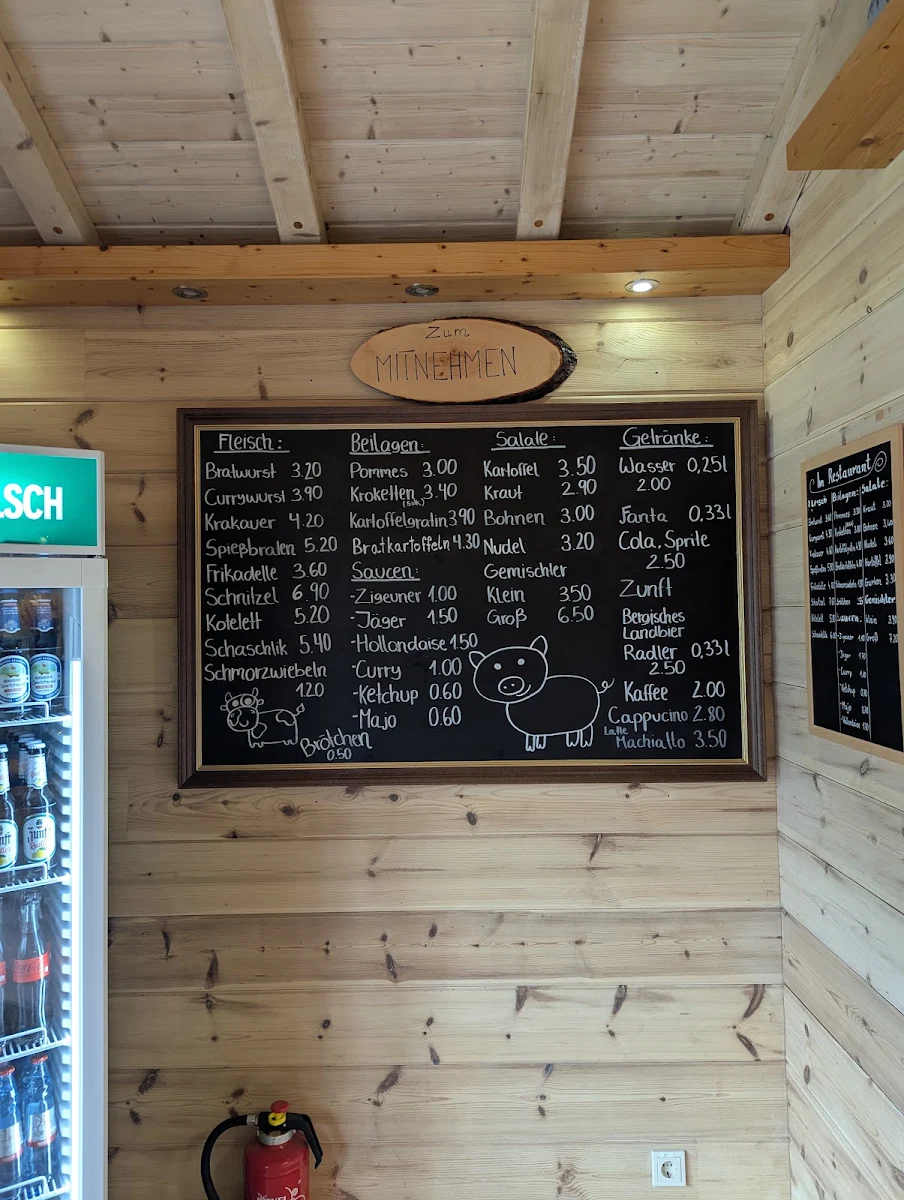 Zum
MITNEHMEN
Fleisch:
Bratwurst 3.20
Currywurst 3.90
Krakauer 4.20
Spießbraten 5.20
Frikadelle 3.60
Schnitzel 6.90
Kotelett 5.20
Schaschlik 5.40
Schmorzwiebeln
1.20
Brötchen
0.50
Beilagen:
Pommes 3.00
Kroketten 3.40
Kartoffelgratin 3.90
Bratkartoffeln 4.30
Saucen:
-Zigeuner 1.00
-Jäger 1.50
-Hollandaise 1.50
-Curry 1.00
-Ketchup 0.60
-Majo 0.60
Salate:
Kartoffel 3.50
Kraut 2.90
Bohnen 3.00
Nudel 3.20
Gemischter
Klein 3.50
Groß 6.50
Getränke:
Wasser 0,25l
2.00
Fanta 0,33l
Cola, Sprite
2.50
Zunft
Bergisches
Landbier
Radler 0,33l
2.50
Kaffee 2.00
Cappucino 2.80
Latte
Machiatto 3.50
Im Restaurant
Beilagen: Salate:
LSCH